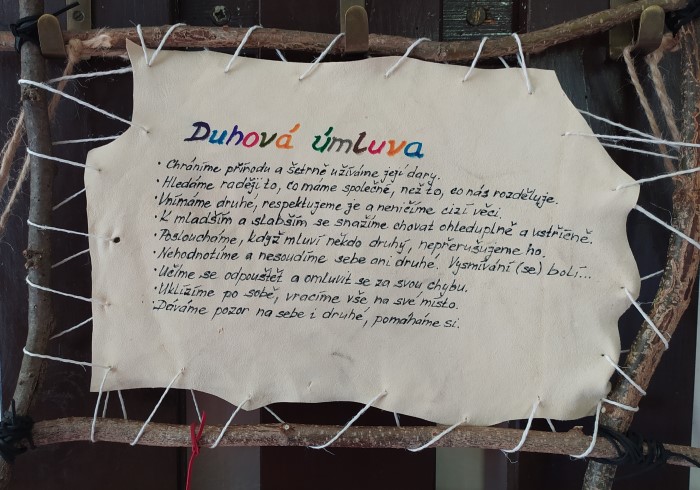 Duhová úmluva
• Chráníme přírodu a šetrně užíváme její dary.
• Hledáme raději to, co máme společné, než to, co nás rozděluje.
• Vnímáme druhé, respektujeme je a neničíme cizí věci.
• K mladším a slabším se snažíme chovat ohleduplně a vstřícně.
• Posloucháme, když mluví někdo druhý, nepřerušujeme ho.
• Nehodnotíme a nesoudíme sebe ani druhé. Vysmívání (se) bolí...
• Učíme se odpouštět a omluvit se za svou chybu.
• Uklízíme po sobě, vracíme vše na své místo.
• Dáváme pozor na sebe i druhé, pomáháme si.